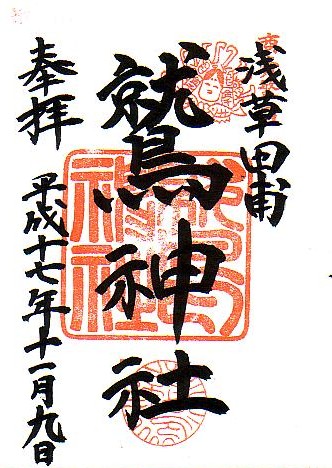 浅草田甫
鷲神社
奉拝
平成十七年十一月九日